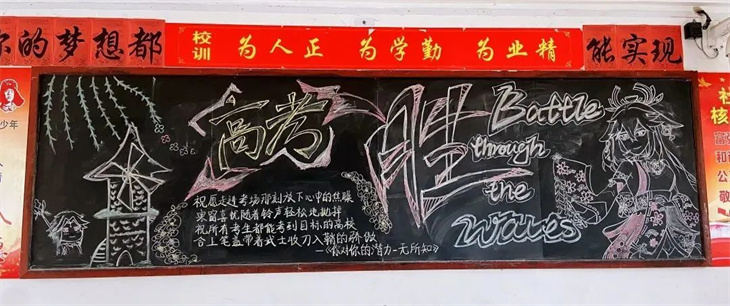 你的梦想都
校训 为人正 为学勤 为业精
能实现
高考
胜
Battle
through
the
Waves
祝愿走进考场那刻放下心中的焦躁
喜忧随着铃声轻松地抛掷
祝所有考生都能考到目标的高校
合上笔盖带着武士收刀入鞘的骄傲
—《你对你的潜力一无所知》
少年
社
核
富
和
公
敬